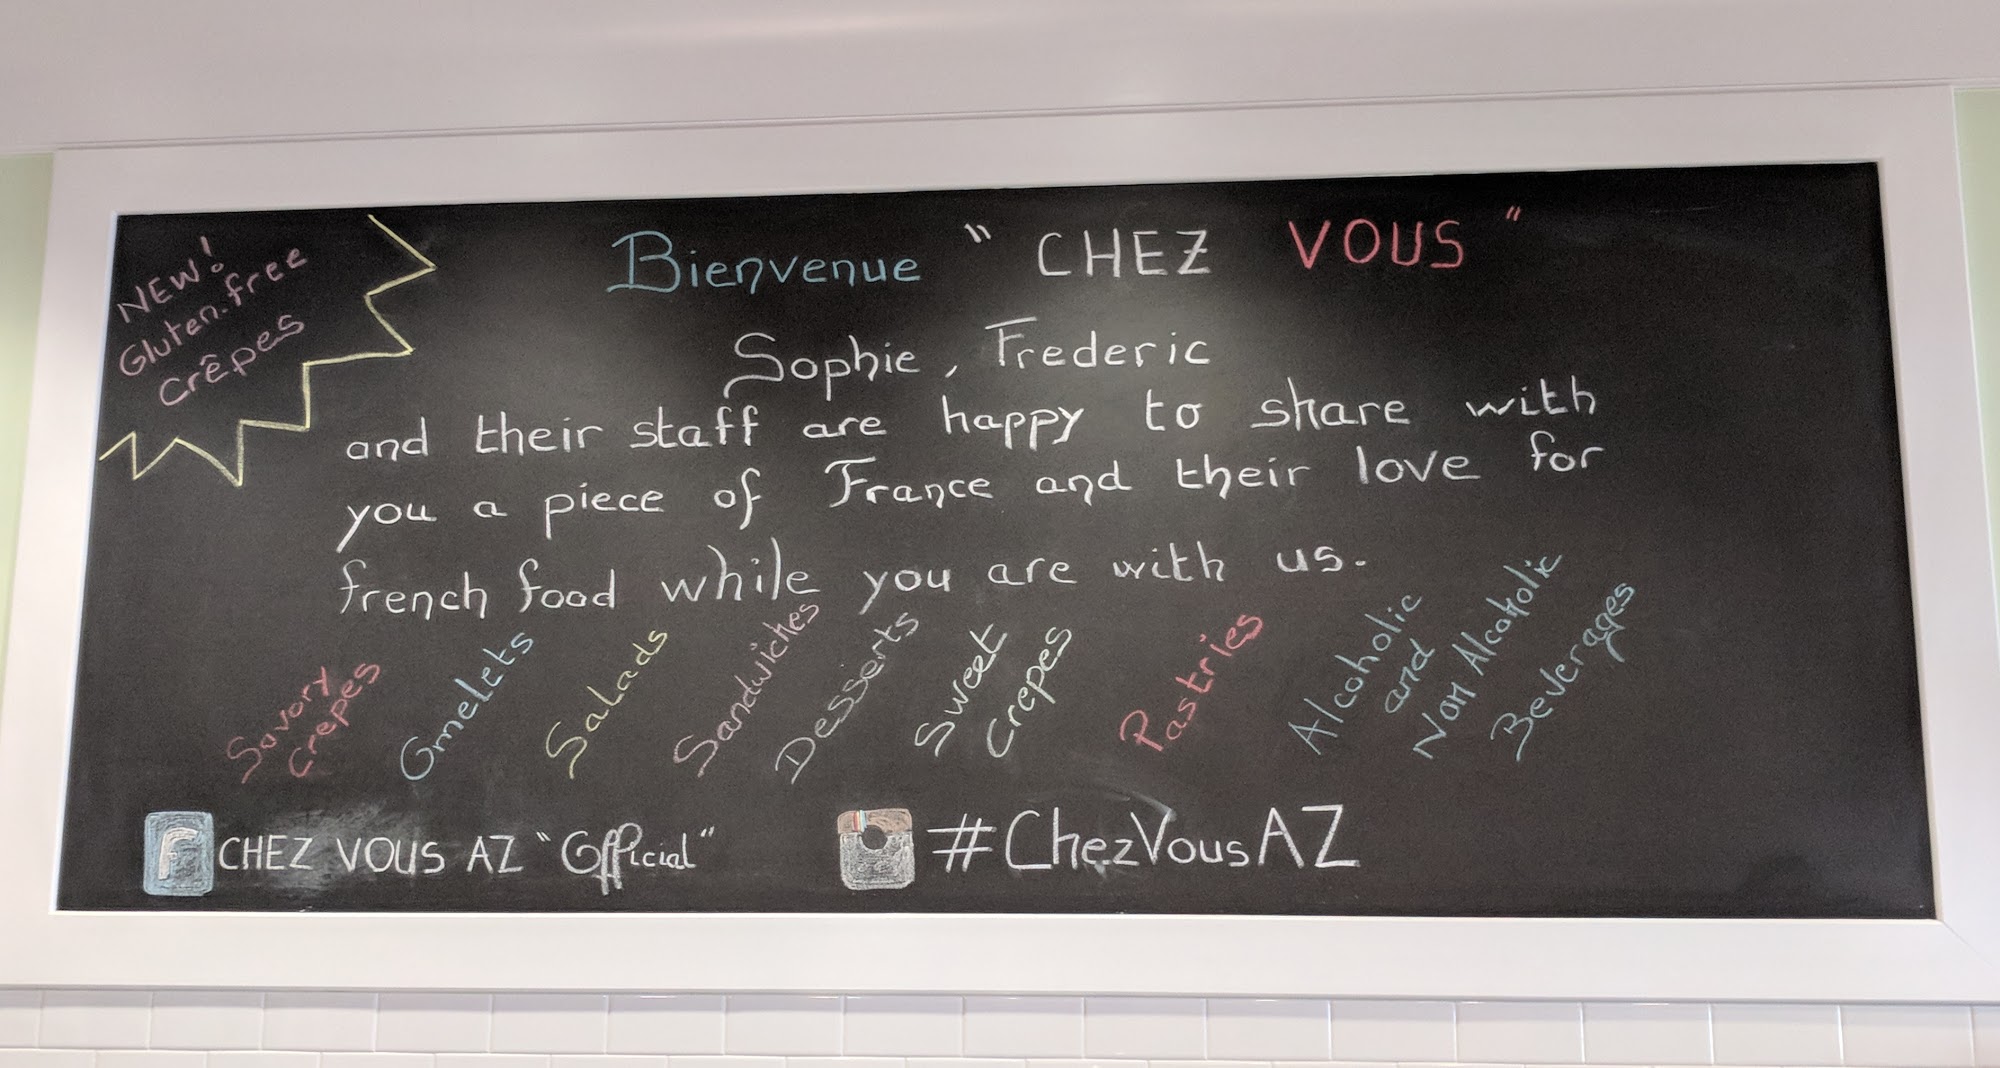 NEW!
Gluten.free
crêpes
Bienvenue "CHEZ VOUS"
Sophie, Frederic
and their staff are happy to share with
you a piece of France and their love for
french food while you are with us.
Savory
Crepes
Omelets
Salads
Sandwiches
Desserts
Sweet
Crepes
Pastries
Alcoholic
and
Non Alcoholic
Beverages
F CHEZ VOUS AZ "Official"
#ChezVousAZ